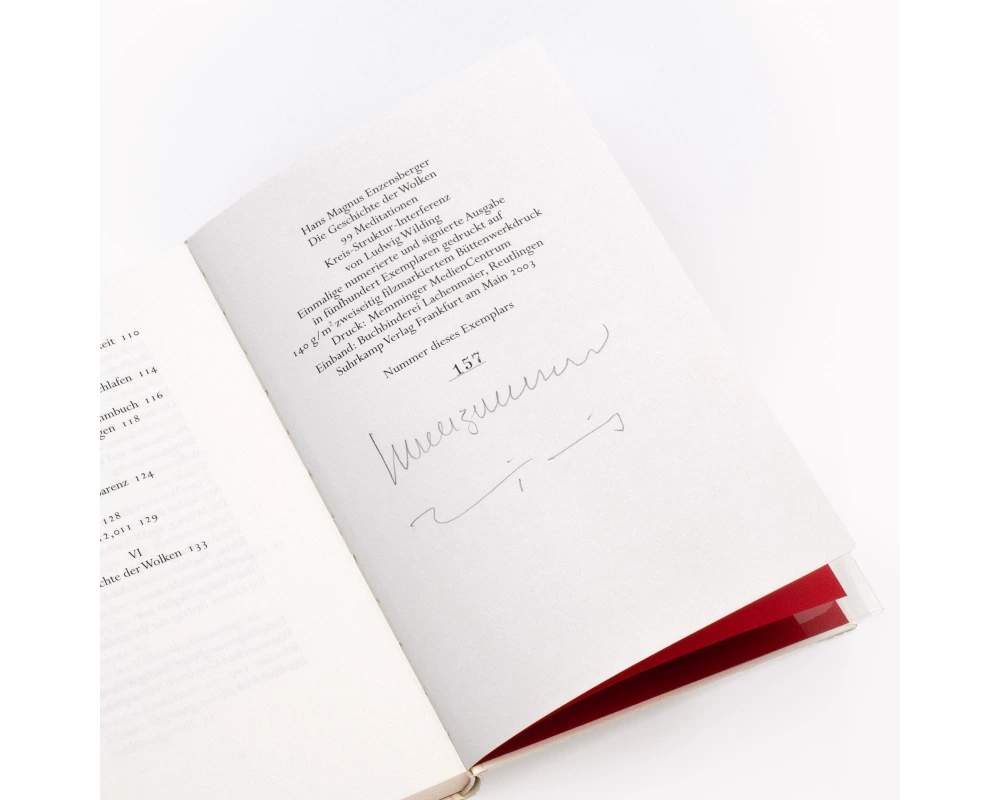 keit 110
chlafen 114
mmbuch 116
gen 118
arenz 124
128
12,011 129
VI
chte der Wolken 133
Hans Magnus Enzensberger
Die Geschichte der Wolken
99 Meditationen
Kreis-Struktur-Interferenz
von Ludwig Wilding
Einmalige numerierte und signierte Ausgabe
in fünfhundert Exemplaren gedruckt auf
140 g/m² zweiseitig filzmarkiertem Büttenwerkdruck
Druck: Memminger MedienCentrum
Einband: Buchbinderei Lachenmaier, Reutlingen
Suhrkamp Verlag Frankfurt am Main 2003
Nummer dieses Exemplars
157